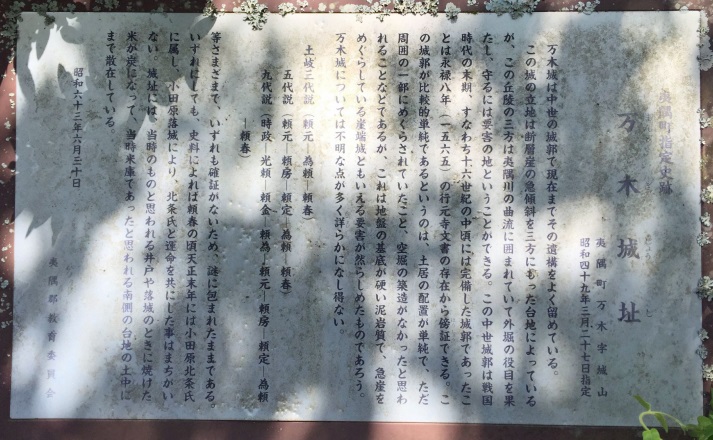 夷隅町指定史跡
万木城址
夷隅町万木字城山
昭和四十九年三月二十七日指定
万木城は中世の城郭で現在までその遺構をよく留めている。
この城の立地は断層崖の急傾斜を三方にもった台地によっている
が、この丘陵の三方は夷隅川の曲流に囲まれていて外堀の役目を果
たし、守るには要害の地ということができる。この中世城郭は戦国
時代の末期、すなわち十六世紀の中頃には完備した城郭であったこ
とは永禄八年(一五六五)の行元寺文書の存在から傍証できる。こ
の城郭が比較的単純であるというのは、土居の配置が単純で、ただ
周囲の一部にめぐらされていたこと、空堀の築造がなかったと思わ
れることなどであるが、これは地盤の基底が硬い泥岩質で、急崖を
めぐらしている崖端城ともいえる要害が然らしめたものであろう。
万木城については不明な点が多く詳らかになし得ない。
土岐三代説(頼元―為頼―頼春)
五代説(頼元―頼房―頼定―為頼―頼春)
九代説(時政―光頼―頼金―頼為―頼元―頼房―頼定―為頼
―頼春)
等さまざまで、いずれも確証がないため、謎に包まれたままである。
いずれにしても、史料によれば頼春の頃天正年末には小田原北条氏
に属し、小田原落城により、北条氏と運命を共にした事はまちがい
ない。城址には、当時のものと思われる井戸や落城のときに焼けた
米が炭になって、当時米庫であったと思われる南側の台地の土中に
まで散在している
昭和六十三年六月三十日
夷隅郡教育委員会